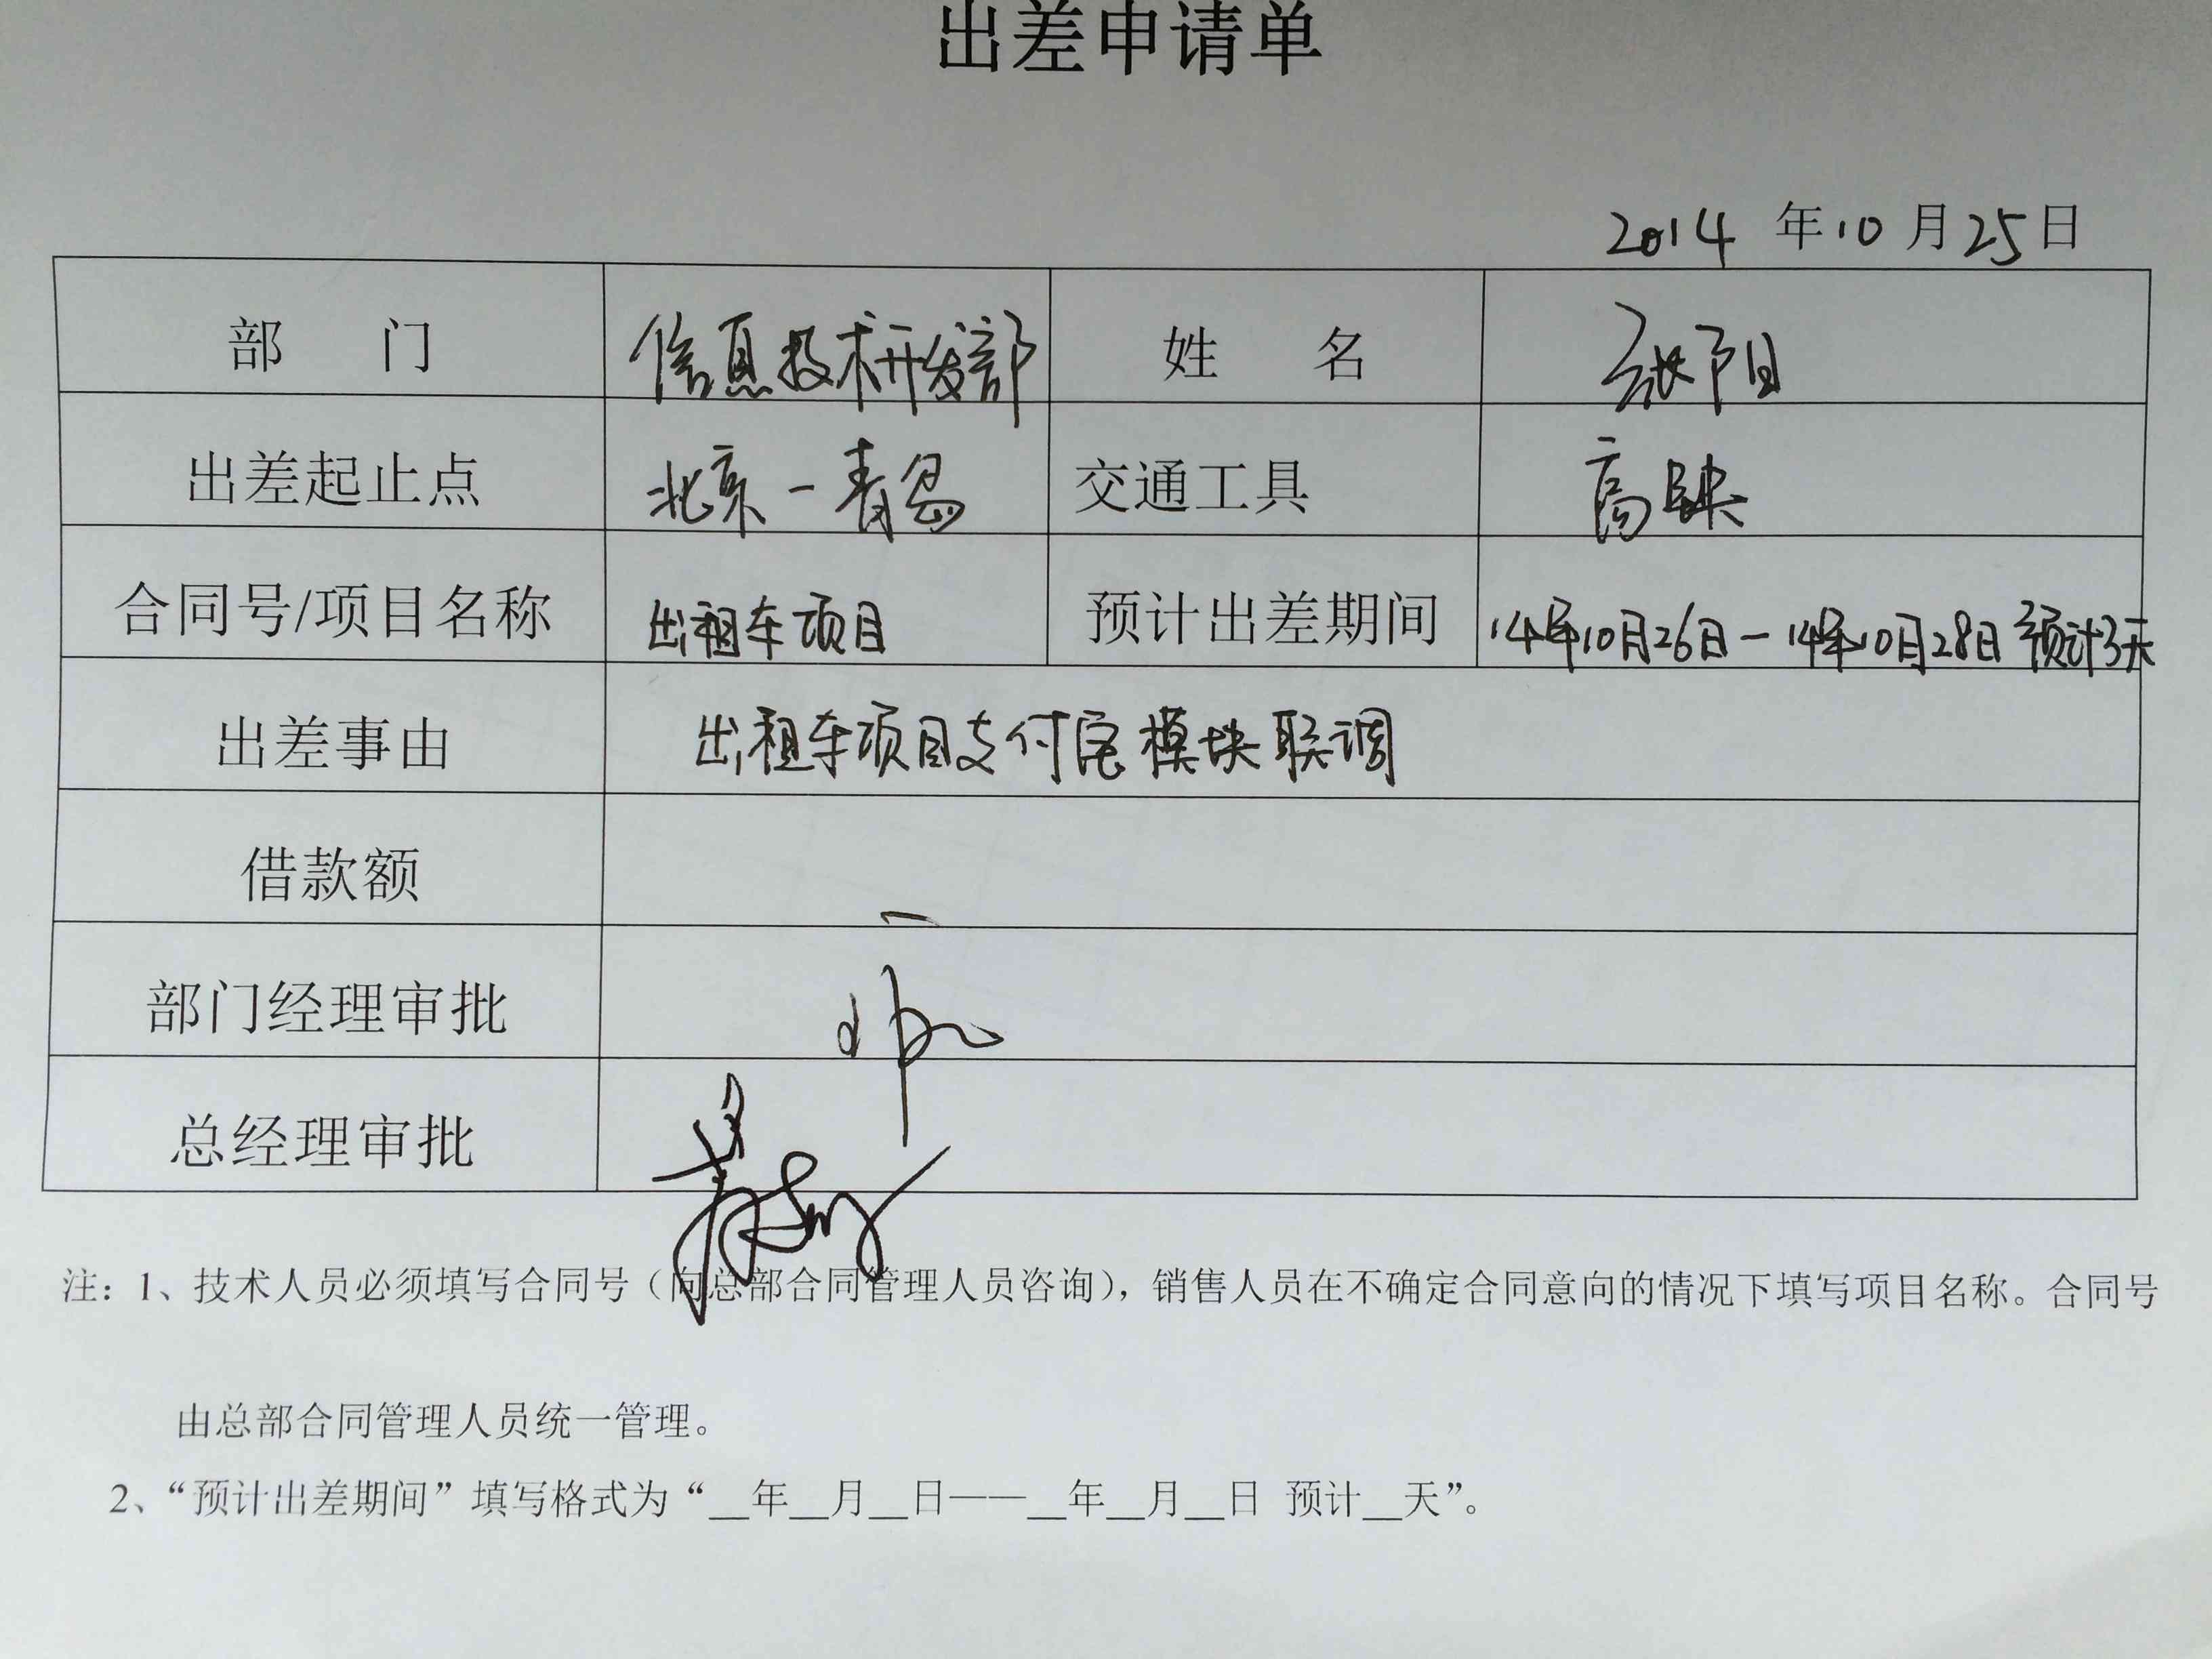 出差申请单
2014 年 10 月 25 日
部 门 信息技术开发部 姓 名 张阳
出差起止点 北京-青岛 交通工具 高铁
合同号/项目名称 出租车项目 预计出差期间 14年10月26日-14年10月28日 预计3天
出差事由 出租车项目支付宝模块联调
借款额
部门经理审批
总经理审批
注：1、技术人员必须填写合同号（向总部合同管理人员咨询），销售人员在不确定合同意向的情况下填写项目名称。合同号
由总部合同管理人员统一管理。
2、“预计出差期间”填写格式为“__年__月__日——__年__月__日 预计__天”。